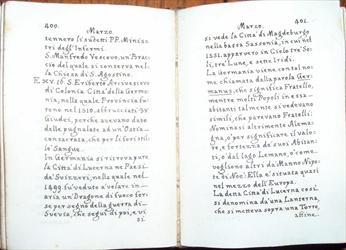 400.
Marzo
tennero li sudetti PP. Minis-
tri degl'Infermi.
S. Manfredo Vescovo, un Brac-
cio del quale si conserva nel-
la Chiesa di S. Agostino.
E. XV. 16. S. Eriberto Arcivescovo
di Colonia Città della Germa-
nia, nella quale Provincia fu-
rono nel 1510. 38.
Giudei, perche avevano date
delle pugnalate ad un'Ostia
consacrata, che per li fori stil-
lò Sangue.
In Germania si ritrova pure
la Città di Lucerna ne' Paesi
de' Svizzeri, nella quale nel
1499. fu veduto à volare in
aria un Dragone di fuoco for-
se per segno della guerra di
Suevia, che seguì di poi, e vi
si
401.
Marzo.
si vede la Città di Magdeburgo
nella bassa Sassonia, in cui nel
1551. apparvero in Cielo trè So-
li, trè Lune, e semi Iridi.
La Germania viene cantal no-
me chiamata dalla parola Ger-
manus, che significa Fratello,
mentre molti Popoli in essa
abitanti talmente si vedevano
simili, che parevano Fratelli:
Nominasi altrimente Alema-
gna, ò per significare il valo-
re, e fortezza da suoi Abitan-
ti, ò dal lago Lemano, ò come
vogliono altri da Manno Nipo-
te di Noè: Ella è situata quasi
nel mezzo dell'Europa.
La detta Città di Lucerna così
si denomina da una Lanterna,
che si metteva sopra una Torre,
affine